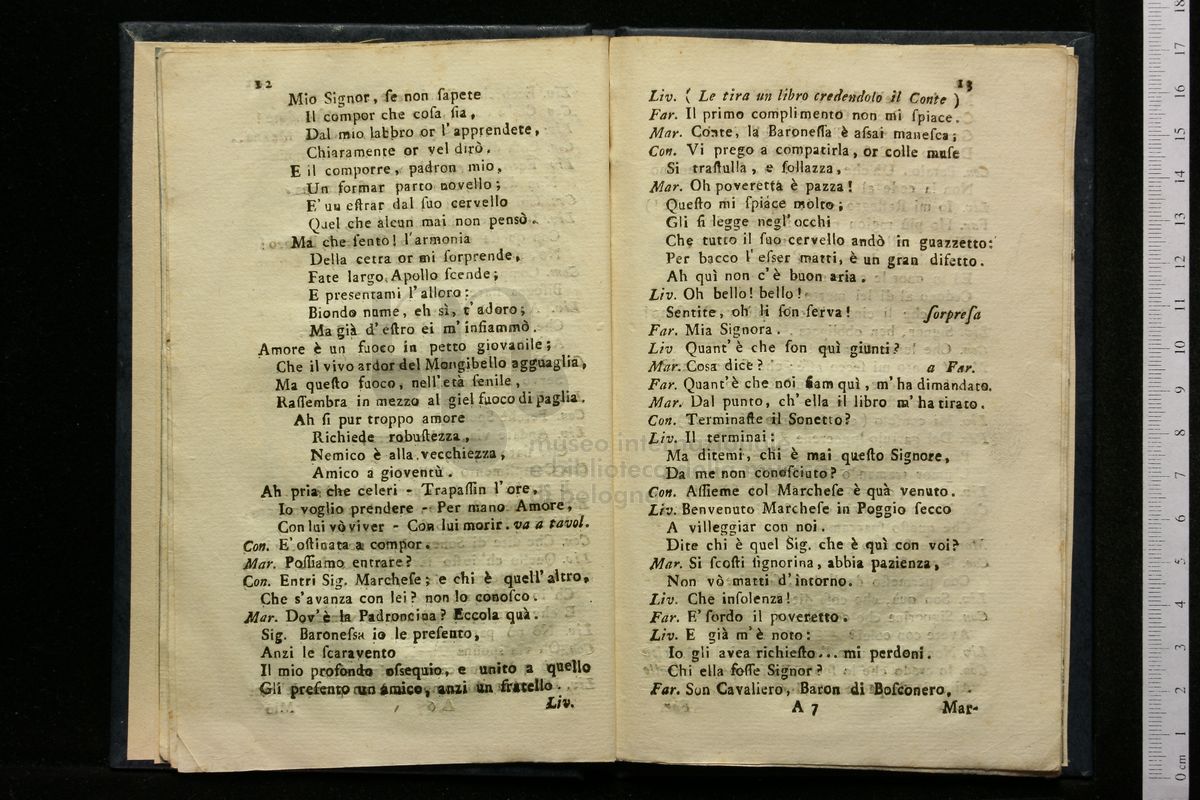 12
Mio Signor, ſe non ſapete
Il compor che coſa ſia,
Dal mio labbro or l'apprendete,
Chiaramente or vel dirò.
E il comporre, padron mio,
Un formar parto novello;
E' un eſtrar dal ſuo cervello
Quel che alcun mai non pensò.
Ma che ſento! l'armonia
Della cetra or mi ſorprende,
Fate largo, Apollo ſcende;
E preſentami l'alloro:
Biondo nume, eh sì, t'adoro;
Ma già d'eſtro ei m'inſiammò.
Amore è un fuoco in petto giovanile;
Che il vivo ardor del Mongibello agguaglia,
Ma queſto fuoco, nell'età ſenile,
Raſſembra in mezzo al giel fuoco di paglia.
Ah ſi pur troppo amore
Richiede robuſtezza,
Nemico è alla vecchiezza,
Amico a gioventù.
Ah pria che celeri - Trapaſſin l'ore,
Io voglio prendere - Per mano Amore,
Con lui vò viver - Con lui morir. va a tavol.
Con. E' oſtinata a compor.
Mar. Poſſiamo entrare?
Con. Entri Sig. Marcheſe; e chi è quell'altro,
Che s'avanza con lei? non lo conoſco.
Mar. Dov'è la Padroncina? Eccola quà.
Sig. Baroneſsa io le preſento,
Anzi le ſcaravento
Il mio profondo oſsequio, e unito a quello
Gli preſento un amico, anzi un fratello.
Liv.
13
Liv. ( Le tira un libro credendolo il Conte )
Far. Il primo complimento non mi ſpiace.
Mar. Conte, la Baroneſſa è aſsai maneſca;
Con. Vi prego a compatirla, or colle muſe
Si traſtulla, e ſollazza,
Mar. Oh poveretta è pazza!
Queſto mi ſpiace molto;
Gli ſi legge negl'occhi
Che tutto il ſuo cervello andò in guazzetto:
Per bacco l'eſser matti, è un gran difetto.
Ah quì non c'è buon aria.
Liv. Oh bello! bello!
Sentite, oh li ſon ſerva! ſorpreſa
Far. Mia Signora.
Liv Quant'è che ſon quì giunti?
Mar. Cosa dice? a Far.
Far. Quant'è che noi ſiam quì, m'ha dimandato.
Mar. Dal punto, ch'ella il libro m'ha tirato.
Con. Terminaſte il Sonetto?
Liv. Il terminai:
Ma ditemi, chi è mai queſto Signore,
Da me non conoſciuto?
Con. Aſſieme col Marcheſe è quà venuto.
Liv. Benvenuto Marcheſe in Poggio ſecco
A villeggiar con noi.
Dite chi è quel Sig. che è quì con voi?
Mar. Si ſcoſti ſignorina, abbia pazienza,
Non vò matti d'intorno.
Liv. Che inſolenza!
Far. E' ſordo il poveretto.
Liv. E già m'è noto:
Io gli avea richieſto... mi perdoni.
Chi ella foſſe Signor?
Far. Son Cavaliero, Baron di Boſconero,
A 7
Mar-